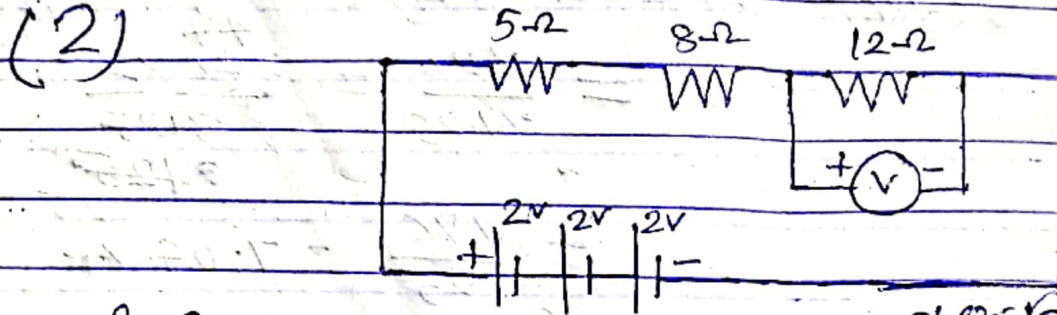 (2)
5Ω 8Ω 12Ω
+ V -
2V 2V 2V
+ -